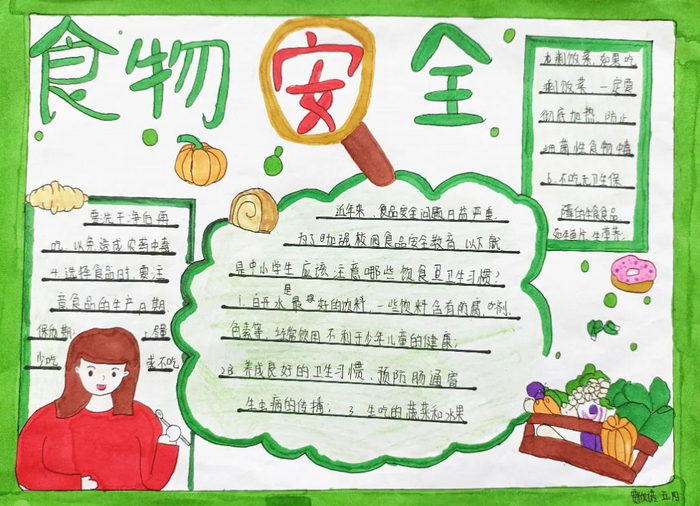 食物安全
近年来、食品安全问题日益严重.
为了加强校园食品安全教育.以下就
是中小学生应该注意哪些饮食卫卫生习惯?
1.白开水是最好的饮料,一些饮料含有防腐剂.
色素等.经常饮用不利于少年儿童的健康;
2 养成良好的卫生习惯、预防肠道寄
生虫病的传播; 3 生吃的蔬菜和水果
要洗干净后再
吃.以免造成农药中毒
4.选择食品时.要注
意食品的生产日期
保质期; 5 少量
少吃 或不吃
剩饭菜.如果吃
剩饭菜 一定要
彻底加热.防止
细菌性食物中毒
6.不吃无卫生保
障的生食食品
如生鱼片.生荸荠.
五四